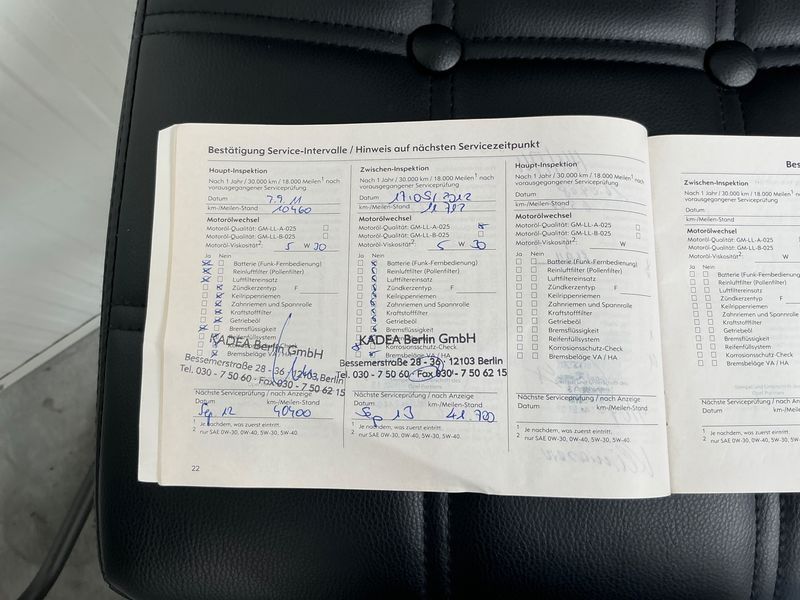 Bestätigung Service-Intervalle / Hinweis auf nächsten Servicezeitpunkt
Haupt-Inspektion
Nach 1 Jahr / 30.000 km / 18.000 Meilen¹ nach
vorausgegangener Serviceprüfung
Datum 7.9.11
km-/Meilen-Stand 10460
Motorölwechsel
Motoröl-Qualität: GM-LL-A-025
Motoröl-Qualität: GM-LL-B-025
Motoröl-Viskosität²: 5 W 30
Ja Nein
Batterie (Funk-Fernbedienung)
Reinluftfilter (Pollenfilter)
Luftfiltereinsatz
Zündkerzentyp F
Keilrippenriemen
Zahnriemen und Spannrolle
Kraftstofffilter
Getriebeöl
Bremsflüssigkeit
Reifenfüllsystem
Bremsbeläge VA / HA
KADEA Berlin GmbH
Bessemerstraße 28 - 36 · 12103 Berlin
Tel. 030 - 7 50 60 - Fax 030 - 7 50 62 15
Nächste Serviceprüfung / nach Anzeige
Datum km-/Meilen-Stand
Sep 12 40400
¹ Je nachdem, was zuerst eintritt.
² nur SAE 0W-30, 0W-40, 5W-30, 5W-40.
22
Zwischen-Inspektion
Nach 1 Jahr / 30.000 km / 18.000 Meilen¹ nach
vorausgegangener Serviceprüfung
Datum
km-/Meilen-Stand
Motorölwechsel
Motoröl-Qualität: GM-LL-A-025
Motoröl-Qualität: GM-LL-B-025
Motoröl-Viskosität²: 5 W 30
Ja Nein
Batterie (Funk-Fernbedienung)
Reinluftfilter (Pollenfilter)
Luftfiltereinsatz
Zündkerzentyp F
Keilrippenriemen
Zahnriemen und Spannrolle
Kraftstofffilter
Getriebeöl
Bremsflüssigkeit
KADEA Berlin GmbH
Korrosionsschutz-Check
Bremsbeläge VA / HA
Bessemerstraße 28 - 36 · 12103 Berlin
Tel. 030 - 7 50 60 - Fax 030 - 7 50 62 15
Nächste Serviceprüfung / nach Anzeige
Datum km-/Meilen-Stand
Sep 13 41.700
¹ Je nachdem, was zuerst eintritt.
² nur SAE 0W-30, 0W-40, 5W-30, 5W-40.
Haupt-Inspektion
Nach 1 Jahr / 30.000 km / 18.000 Meilen¹ nach
vorausgegangener Serviceprüfung
Datum
km-/Meilen-Stand
Motorölwechsel
Motoröl-Qualität: GM-LL-A-025
Motoröl-Qualität: GM-LL-B-025
Motoröl-Viskosität²: W
Ja Nein
Batterie (Funk-Fernbedienung)
Reinluftfilter (Pollenfilter)
Luftfiltereinsatz
Zündkerzentyp F
Keilrippenriemen
Zahnriemen und Spannrolle
Kraftstofffilter
Getriebeöl
Bremsflüssigkeit
Reifenfüllsystem
Korrosionsschutz-Check
Bremsbeläge VA / HA
Nächste Serviceprüfung / nach Anzeige
Datum km-/Meilen-Stand
¹ Je nachdem, was zuerst eintritt.
² nur SAE 0W-30, 0W-40, 5W-30, 5W-40.
Zwischen-Inspektion
Nach 1 Jahr / 30.000 km / 18.000 Meilen¹ nach
vorausgegangener Serviceprüfung
Datum
km-/Meilen-Stand
Motorölwechsel
Motoröl-Qualität: GM-LL-A-025
Motoröl-Qualität: GM-LL-B-025
Motoröl-Viskosität²: W
Ja Nein
Batterie (Funk-Fernbedienung)
Reinluftfilter (Pollenfilter)
Luftfiltereinsatz
Zündkerzentyp F
Keilrippenriemen
Zahnriemen und Spannrolle
Kraftstofffilter
Getriebeöl
Bremsflüssigkeit
Reifenfüllsystem
Korrosionsschutz-Check
Bremsbeläge VA / HA
Nächste Serviceprüfung / nach Anzeige
Datum km-/Meilen-Stand
¹ Je nachdem, was zuerst eintritt.
² nur SAE 0W-30, 0W-40, 5W-30, 5W-40.